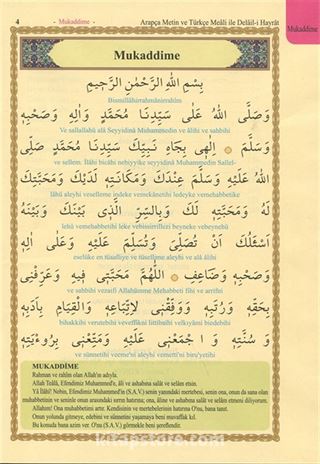 4 - Mukaddime - Arapça Metin ve Türkçe Meâli ile Delâil-i Hayrât
Mukaddime
Mukaddime
بِسْمِ اللهِ الرَّحْمٰنِ الرَّحِيمِ
Bismillâhirrahmânirrahîm
وَصَلَّى اللهُ عَلٰى سَيِّدِنَا مُحَمَّدٍ وَاٰلِهِ وَصَحْبِهِ
Ve sallallahü alâ Seyyidinâ Muhammedin ve âlihi ve sahbihi
وَسَلَّمَ اِلٰهِي بِجَاهِ نَبِيِّكَ سَيِّدِنَا مُحَمَّدٍ صَلَّى
ve sellem. İlâhi bicâhi nebiyyike seyyidinâ Muhammedin Sallel-
اللهُ عَلَيْهِ وَسَلَّمَ عِنْدَكَ وَمَكَانَتِهِ لَدَيْكَ وَمَحَبَّتِكَ
lâhü aleyhi vesellem indeke vemekânetihi ledeyke vemehabbetike
لَهُ وَمَحَبَّتِهِ لَكَ وَبِالسِّرِّ الَّذِي بَيْنَكَ وَبَيْنَهُ
lehü vemehabbetihi leke vebissirrillezi beyneke vebeynehü
اَسْئَلُكَ اَنْ تُصَلِّيَ وَتُسَلِّمَ عَلَيْهِ وَعَلٰى اٰلِهِ
eselüke en tüsalliye ve tüsellime aleyhi ve alâ âlihi
وَصَحْبِهِ وَضَاعِفِ اَللّٰهُمَّ مَحَبَّتِي فِيهِ وَعَرِّفْنِي
ve sahbihi vezaifi Allahümme Mehabbeti fihi ve arrifni
بِحَقِّهِ وَرُتَبِهِ وَوَفِّقْنِي لِاتِّبَاعِهِ وَالْقِيَامِ بِاٰدَابِهِ
bihakkihi verutebihi veveffıkni littibaihi velkıyâmi biedebihi
وَسُنَّتِهِ وَاجْمَعْنِي عَلَيْهِ وَمَتِّعْنِي بِرُؤْيَتِهِ
ve sünnetihi vecme'ni aleyhi vemetti'ni biru'yetihi
MUKADDİME
Rahman ve rahîm olan Allah'ın adıyla.
Allah Teâlâ, Efendimiz Muhammed'e, âli ve ashabına salât ve selâm etsin.
Yâ İlâhî! Nebin, Efendimiz Muhammed'in (S.A.V.) senin yanındaki mertebesi, senin ona, onun da sana olan
muhabbetinin ve seninle onun arasındaki sırrın hatırına; ona, âline ve ashabına salât ve selâm etmeni diliyorum.
Allahım! Ona muhabbetimi artır. Kendisinin ve mertebelerinin hatırına O'nu, bana tanıt.
Onun yolunda gitmeye, edebini ve sünnetini yaşamaya beni muvaffak kıl.
Bu konuda bana azim ver. O'nu (S.A.V.) görmekle beni şereflendir.
kitapstore.com